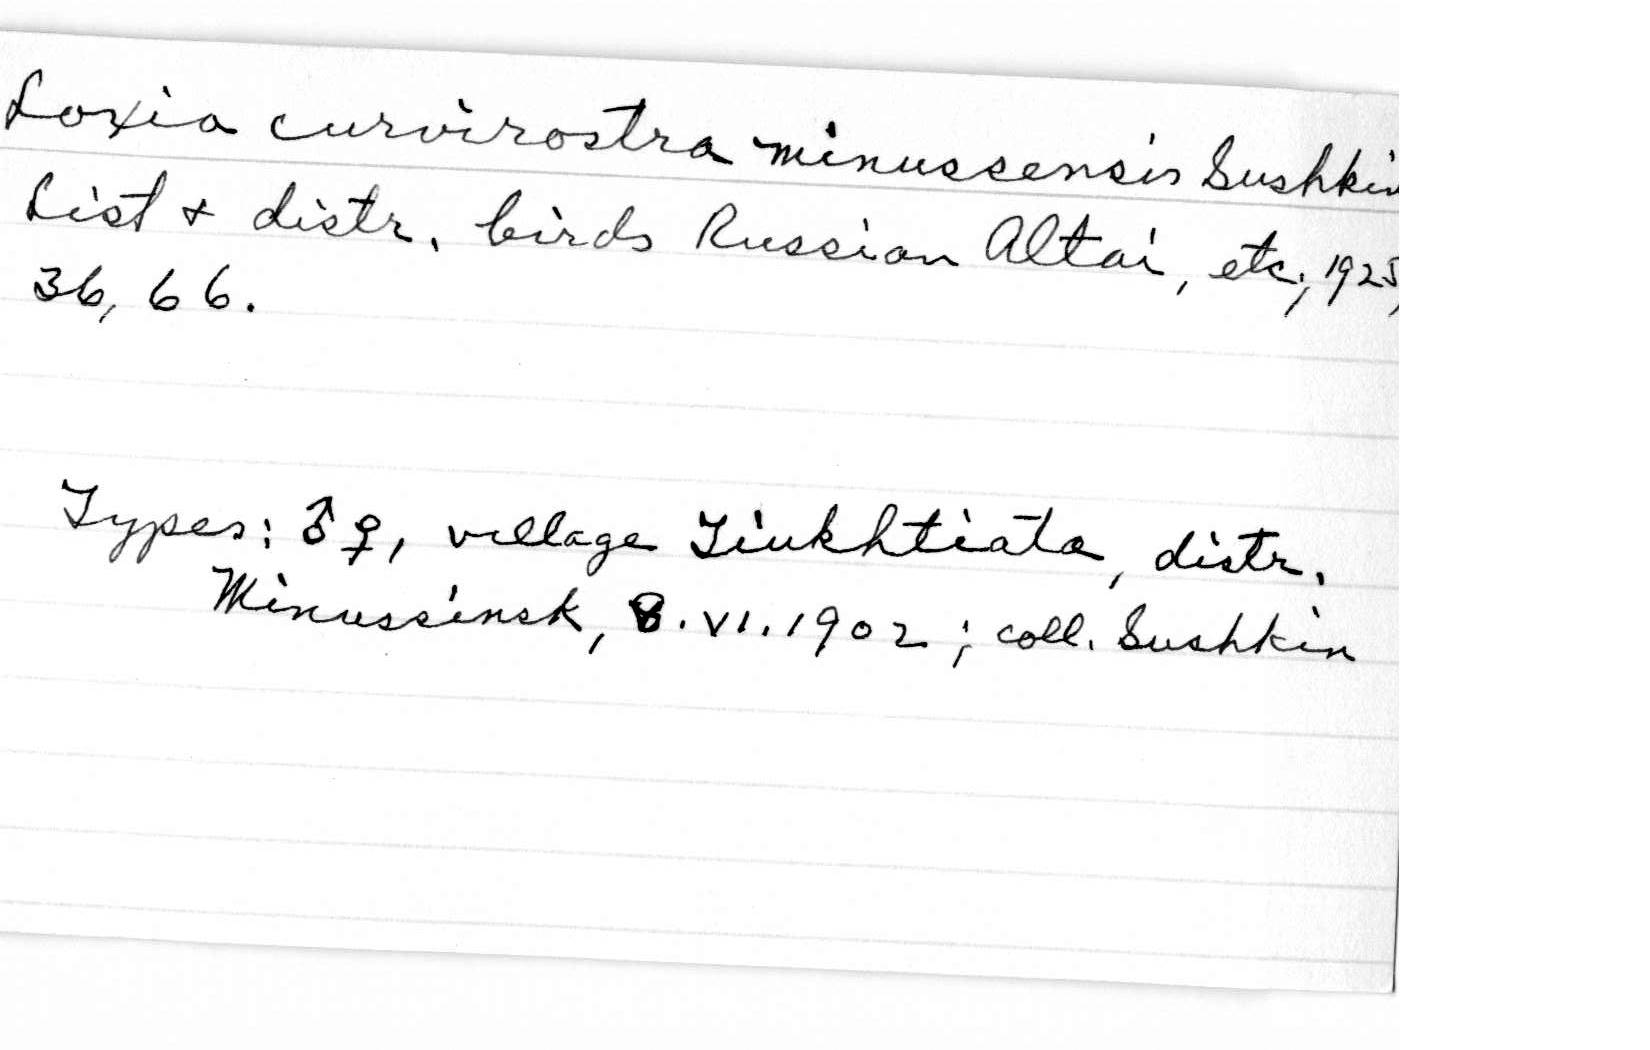 Loxia curvirostra minussensis Sushkin
List & distr. birds Russian Altai, etc., 1925,
36, 66.
Types: ♂♀, village Tiukhtiata, distr.
Minussinsk, 8.VI.1902; coll. Sushkin